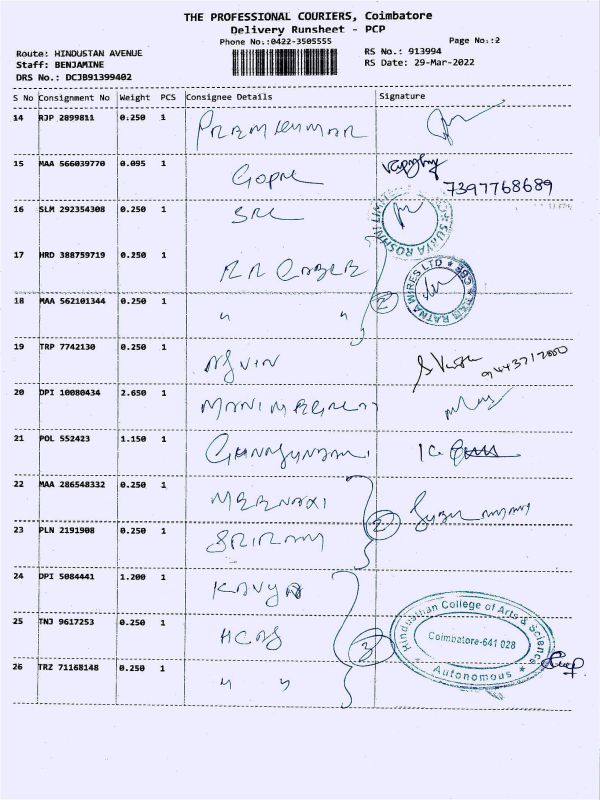 THE PROFESSIONAL COURIERS, Coimbatore
Delivery Runsheet - PCP
Phone No.:0422-3505555 Page No.:2
Route: HINDUSTAN AVENUE RS No.: 913994
Staff: BENJAMINE RS Date: 29-Mar-2022
DRS No.: DCJB91399402
S No Consignment No Weight PCS Consignee Details Signature
14 RJP 2899811 0.250 1 PREMKUMAR
15 MAA 566039770 0.095 1 GOPAL
7397768689
16 SLM 292354308 0.250 1 SRL
SURYA ROSHNI LIMITED
17 HRD 388759719 0.250 1 RR CABLE
RAM RATNA WIRES LTD ★ CBE ★
18 MAA 562101344 0.250 1 " " 2
19 TRP 7742130 0.250 1
20 DPI 10080434 2.650 1 MANIMEGALAI
21 POL 552423 1.150 1
22 MAA 286548332 0.250 1 MEENAXI
23 PLN 2191908 0.250 1 SRIRAM 2
24 DPI 5084441 1.200 1 KAVYA
25 TNJ 9617253 0.250 1 HCAS 3
Hindusthan College of Arts & Science
Coimbatore-641 028
★ Autonomous ★
26 TRZ 71168148 0.250 1 " "